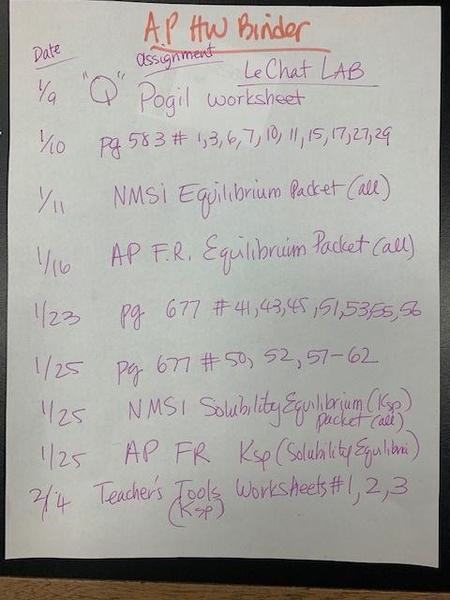 A.P HW Binder
Date assignment LeChat LAB
1/9 "Q" Pogil worksheet
1/10 pg 583 # 1,3,6,7,10,11,15,17,27,29
1/11 NMSi Equilibrium Packet (all)
1/16 AP F.R. Equilibruim Packet (all)
1/23 pg 677 #41,43,45,51,53,55,56
1/25 pg 677 #50, 52, 57-62
1/25 NMSI Solubility Equilibrium (Ksp)
packet (all)
1/25 AP FR Ksp (Solubility Equilibri)
2/14 Teacher's Tools Worksheets #1, 2, 3
(Ksp)